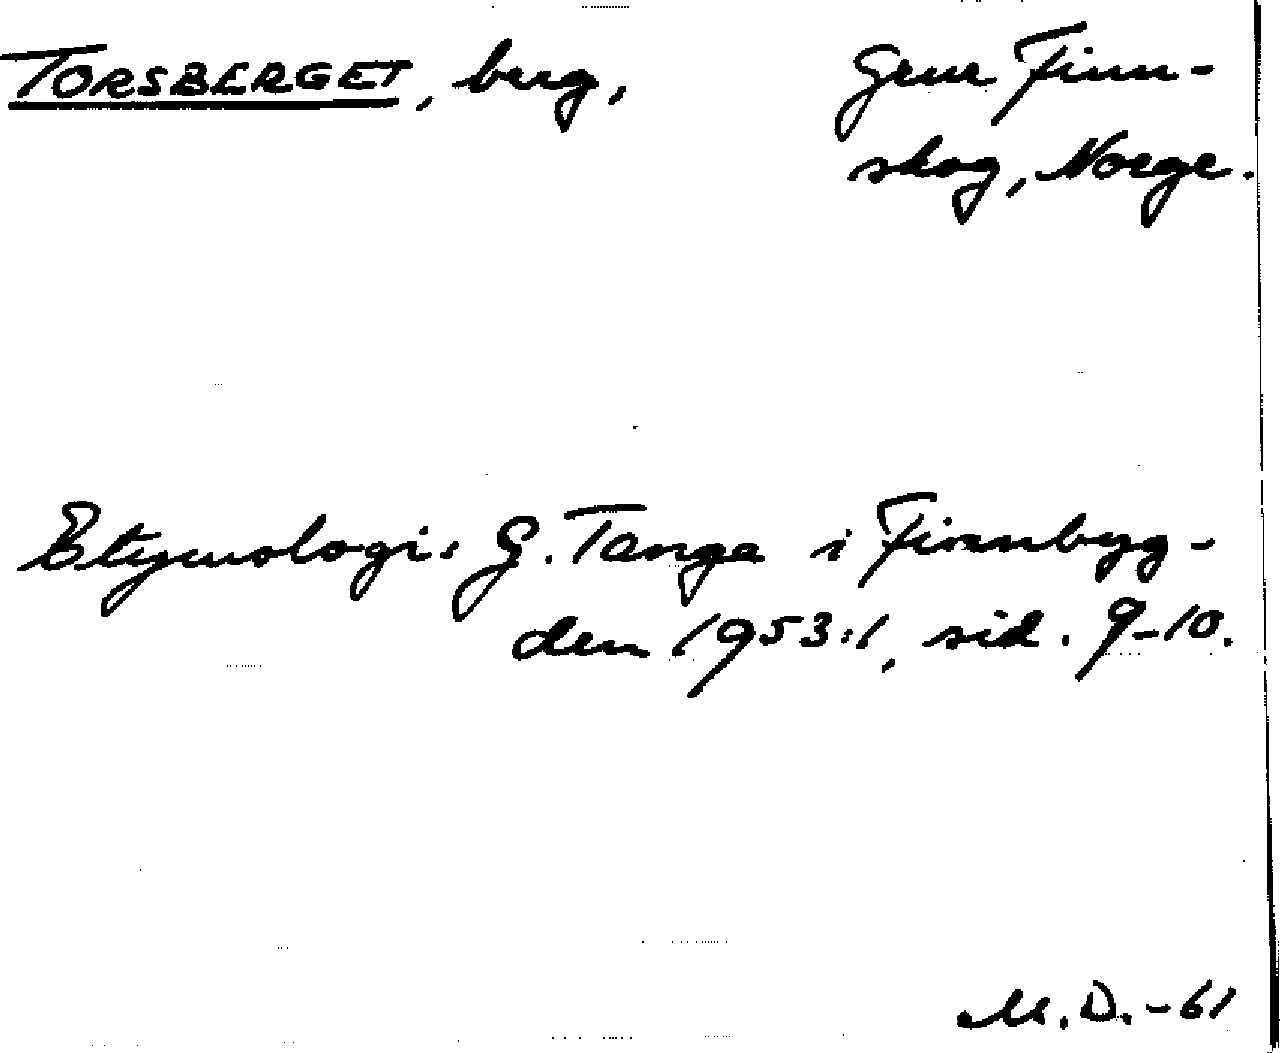 TORSBERGET, berg, Grue Finn-
skog, Norge.
Etymologi: G. Tanga i Finnbyg-
den 1953:1, sid. 9-10.
M.D. -61